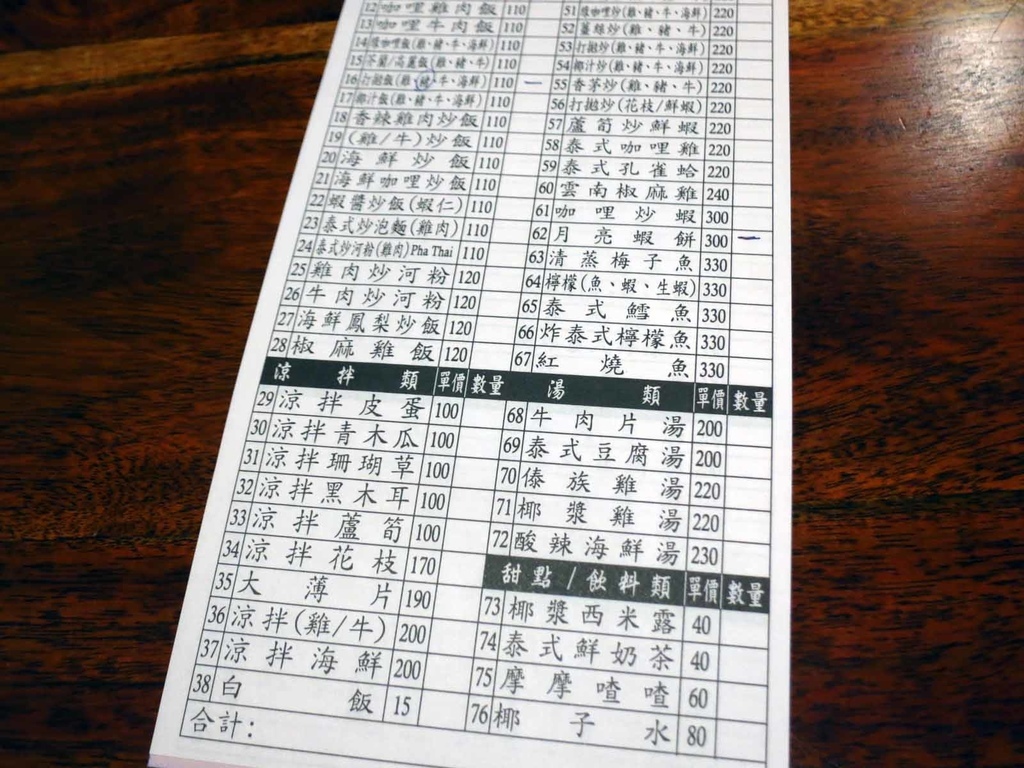 12 咖哩雞肉飯 110
13 咖哩牛肉飯 110
14 綠咖哩飯(雞、豬、牛、海鮮) 110
15 芥蘭/高麗飯(雞、豬、牛) 110
16 打拋飯(雞、豬、牛、海鮮) 110 一
17 椰汁飯(雞、豬、牛、海鮮) 110
18 香辣雞肉炒飯 110
19 (雞/牛)炒飯 110
20 海鮮炒飯 110
21 海鮮咖哩炒飯 110
22 蝦醬炒飯(蝦仁) 110
23 泰式炒泡麵(雞肉) 110
24 泰式炒河粉(雞肉)Pha Thai 110
25 雞肉炒河粉 120
26 牛肉炒河粉 120
27 海鮮鳳梨炒飯 120
28 椒麻雞飯 120
涼拌類 單價 數量
29 涼拌皮蛋 100
30 涼拌青木瓜 100
31 涼拌珊瑚草 100
32 涼拌黑木耳 100
33 涼拌蘆筍 100
34 涼拌花枝 170
35 大薄片 190
36 涼拌(雞/牛) 200
37 涼拌海鮮 200
38 白飯 15
合計:
51 綠咖哩炒(雞、豬、牛、海鮮) 220
52 薑絲炒(雞、豬、牛、海鮮) 220
53 打拋炒(雞、豬、牛、海鮮) 220
54 椰汁炒(雞、豬、牛、海鮮) 220
55 香茅炒(雞、豬、牛) 220
56 打拋炒(花枝/鮮蝦) 220
57 蘆筍炒鮮蝦 220
58 泰式咖哩雞 220
59 泰式孔雀蛤 220
60 雲南椒麻雞 240
61 咖哩炒蝦 300
62 月亮蝦餅 300 一
63 清蒸梅子魚 330
64 檸檬(魚、蝦、生蝦) 330
65 泰式鱈魚 330
66 炸泰式檸檬魚 330
67 紅燒魚 330
湯類 單價 數量
68 牛肉片湯 200
69 泰式豆腐湯 200
70 傣族雞湯 220
71 椰漿雞湯 220
72 酸辣海鮮湯 230
甜點/飲料類 單價 數量
73 椰漿西米露 40
74 泰式鮮奶茶 40
75 摩摩喳喳 60
76 椰子水 80